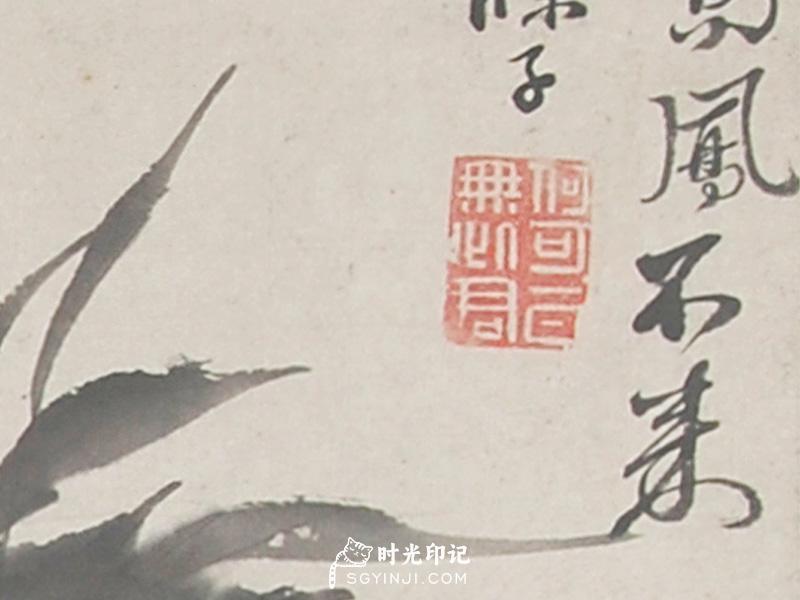 鳳不來
子
何可一日
無此君
时光印记
SGYINJI.COM